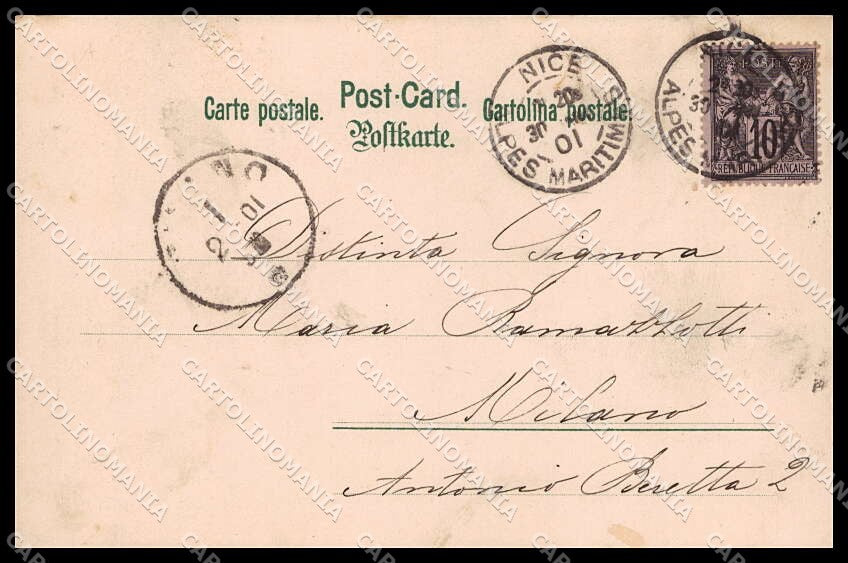 Carte postale. Post-Card. Cartolina postale.
Postkarte.
NICE
30
01
ALPES MARITIMES
POSTE
10
REPUBLIQUE FRANÇAISE
ALPES
30
2
1
01
Distinta Signora
Maria Ramazzotti
Milano
Antonio Beretta 2
CARTOLINOMANIA